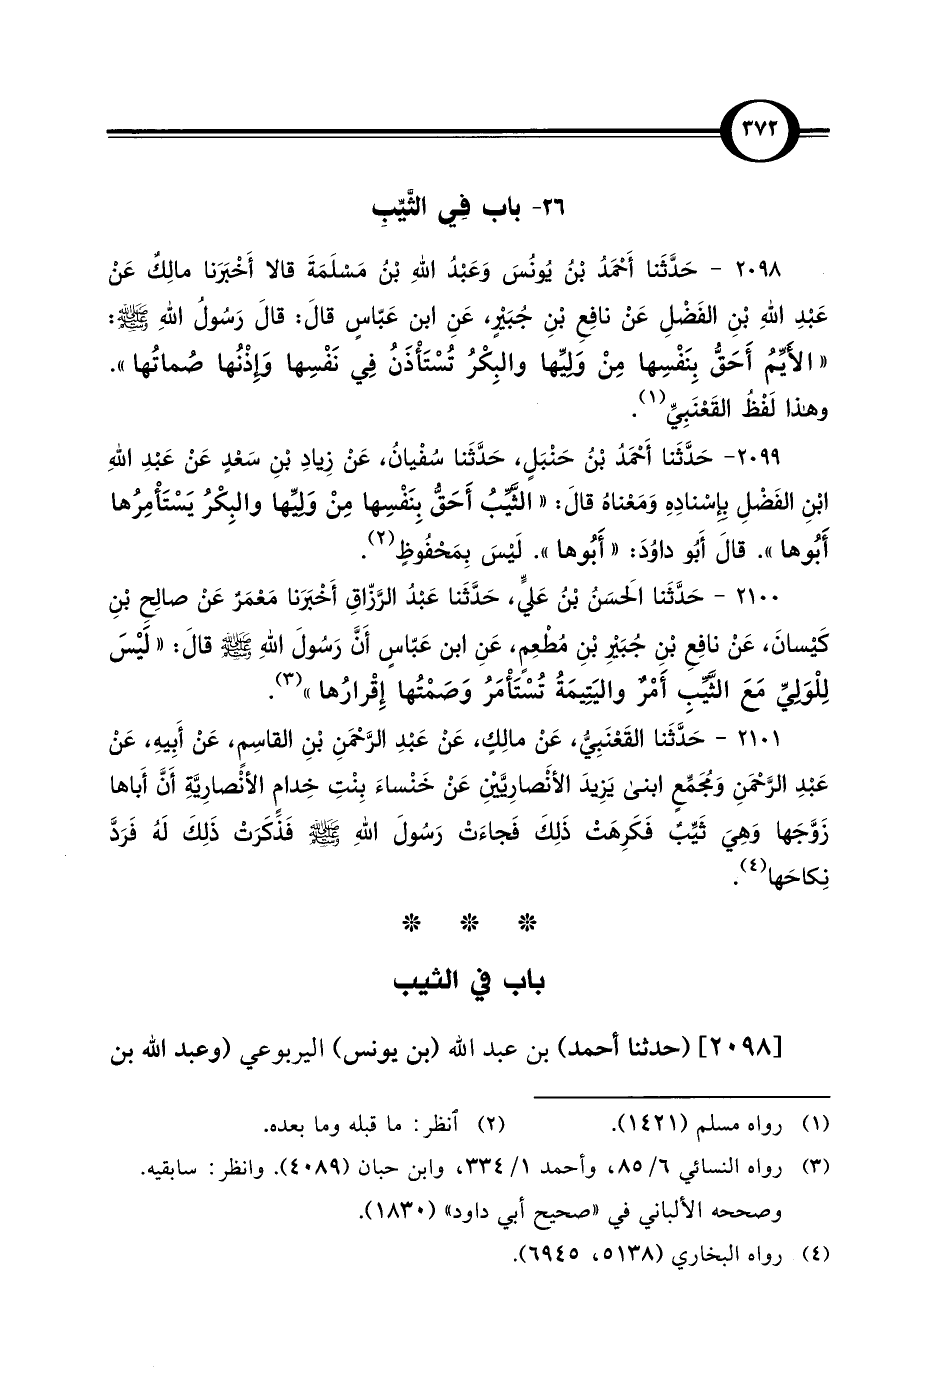 ٣٧٢
٢٦- باب فِي الثَّيِّبِ
٢٠٩٨ - حَدَّثَنا أَحْمَدُ بْنُ يُونُسَ وَعَبْدُ اللهِ بْنُ مَسْلَمَةَ قالا أَخْبَرَنا مالِكٌ عَنْ
عَبْدِ اللهِ بْنِ الفَضْلِ عَنْ نافِعِ بْنِ جُبَيْرٍ، عَنِ ابن عَبّاسٍ قالَ: قالَ رَسُولُ اللهِ ﷺ:
« الأَيِّمُ أَحَقُّ بِنَفْسِها مِنْ وَلِيِّها والبِكْرُ تُسْتَأْذَنُ فِي نَفْسِها وَإِذْنُها صُماتُها ».
وهذا لَفْظُ القَعْنَبِيِّ(١).
٢٠٩٩- حَدَّثَنا أَحْمَدُ بْنُ حَنْبَلٍ، حَدَّثَنا سُفْيانُ، عَنْ زِيادِ بْنِ سَعْدٍ عَنْ عَبْدِ اللهِ
ابْنِ الفَضْلِ بِإِسْنادِهِ وَمَعْناهُ قالَ: « الثَّيِّبُ أَحَقُّ بِنَفْسِها مِنْ وَلِيِّها والبِكْرُ يَسْتَأْمِرُها
أَبُوها ». قالَ أَبُو داوُدَ: « أَبُوها ». لَيْسَ بِمَحْفُوظٍ(٢).
٢١٠٠ - حَدَّثَنا الحَسَنُ بْنُ عَليٍّ، حَدَّثَنا عَبْدُ الرَّزّاقِ أَخْبَرَنا مَعْمَرٌ عَنْ صالِحِ بْنِ
كَيْسانَ، عَنْ نافِعِ بْنِ جُبَيْرِ بْنِ مُطْعِمٍ، عَنِ ابن عَبّاسٍ أَنَّ رَسُولَ اللهِ ﷺ قالَ: « لَيْسَ
لِلْوَلِيِّ مَعَ الثَّيِّبِ أَمْرٌ واليَتِيمَةُ تُسْتَأْمَرُ وَصَمْتُها إِقْرارُها »(٣).
٢١٠١ - حَدَّثَنا القَعْنَبِيُّ، عَنْ مالِكٍ، عَنْ عَبْدِ الرَّحْمَنِ بْنِ القاسِمِ، عَنْ أَبِيهِ، عَنْ
عَبْدِ الرَّحْمَنِ وَمُجَمِّعٍ ابنىْ يَزِيدَ الأَنْصارِيَّيْنِ عَنْ خَنْساءَ بِنْتِ خِدامٍ الأنْصارِيَّةِ أَنَّ أَباها
زَوَّجَها وَهِيَ ثَيِّبٌ فَكَرِهَتْ ذَلِكَ فَجاءَتْ رَسُولَ اللهِ ﷺ فَذَكَرَتْ ذَلِكَ لَهُ فَرَدَّ
نِكاحَها(٤).
* * *
باب في الثيب
[٢٠٩٨] (حدثنا أحمد) بن عبد الله (بن يونس) اليربوعي (وعبد الله بن
(١) رواه مسلم (١٤٢١). (٢) ٱنظر: ما قبله وما بعده.
(٣) رواه النسائي ٦/ ٨٥، وأحمد ١/ ٣٣٤، وابن حبان (٤٠٨٩). وانظر: سابقيه.
وصححه الألباني في «صحيح أبي داود» (١٨٣٠).
(٤) رواه البخاري (٥١٣٨، ٦٩٤٥).